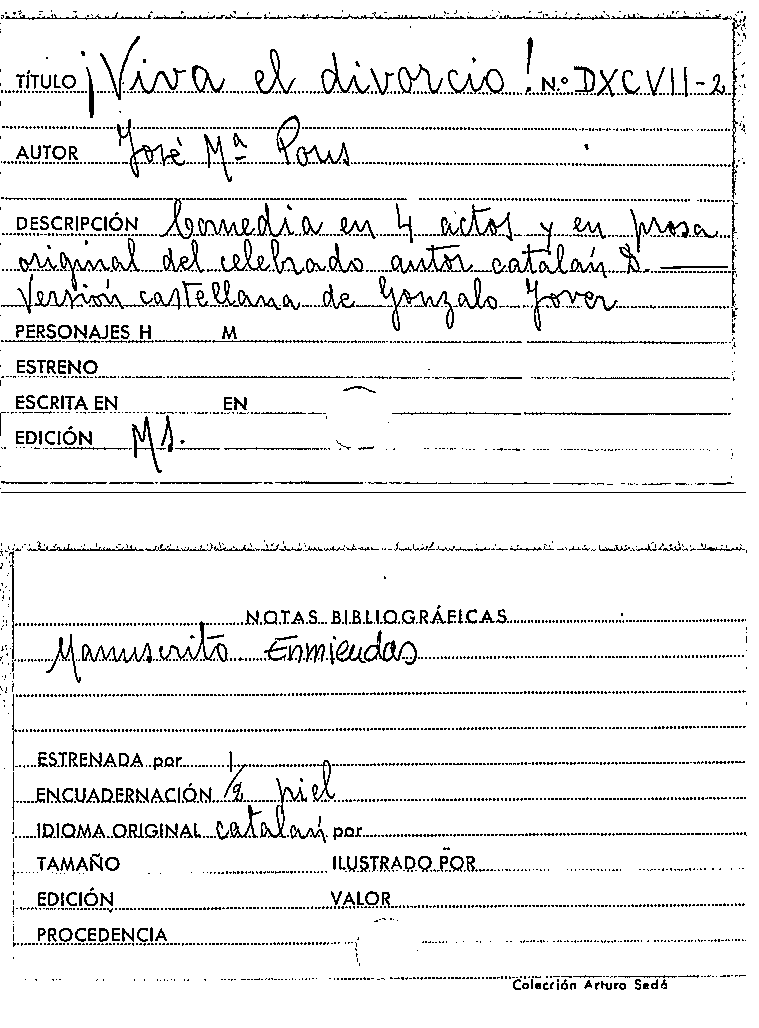 TÍTULO ¡Viva el divorcio! Nº DXCVII-2
AUTOR José Mª Pous
DESCRIPCIÓN Comedia en 4 actos y en prosa
original del celebrado autor catalán D. ——
Versión castellana de Gonzalo Jover
PERSONAJES H M
ESTRENO
ESCRITA EN EN
EDICIÓN Ms.
NOTAS BIBLIOGRÁFICAS
Manuscrito Enmiendas
ESTRENADA por
ENCUADERNACIÓN 1/2 piel
IDIOMA ORIGINAL catalán por
TAMAÑO ILUSTRADO POR
EDICIÓN VALOR
PROCEDENCIA
Colección Arturo Sedó